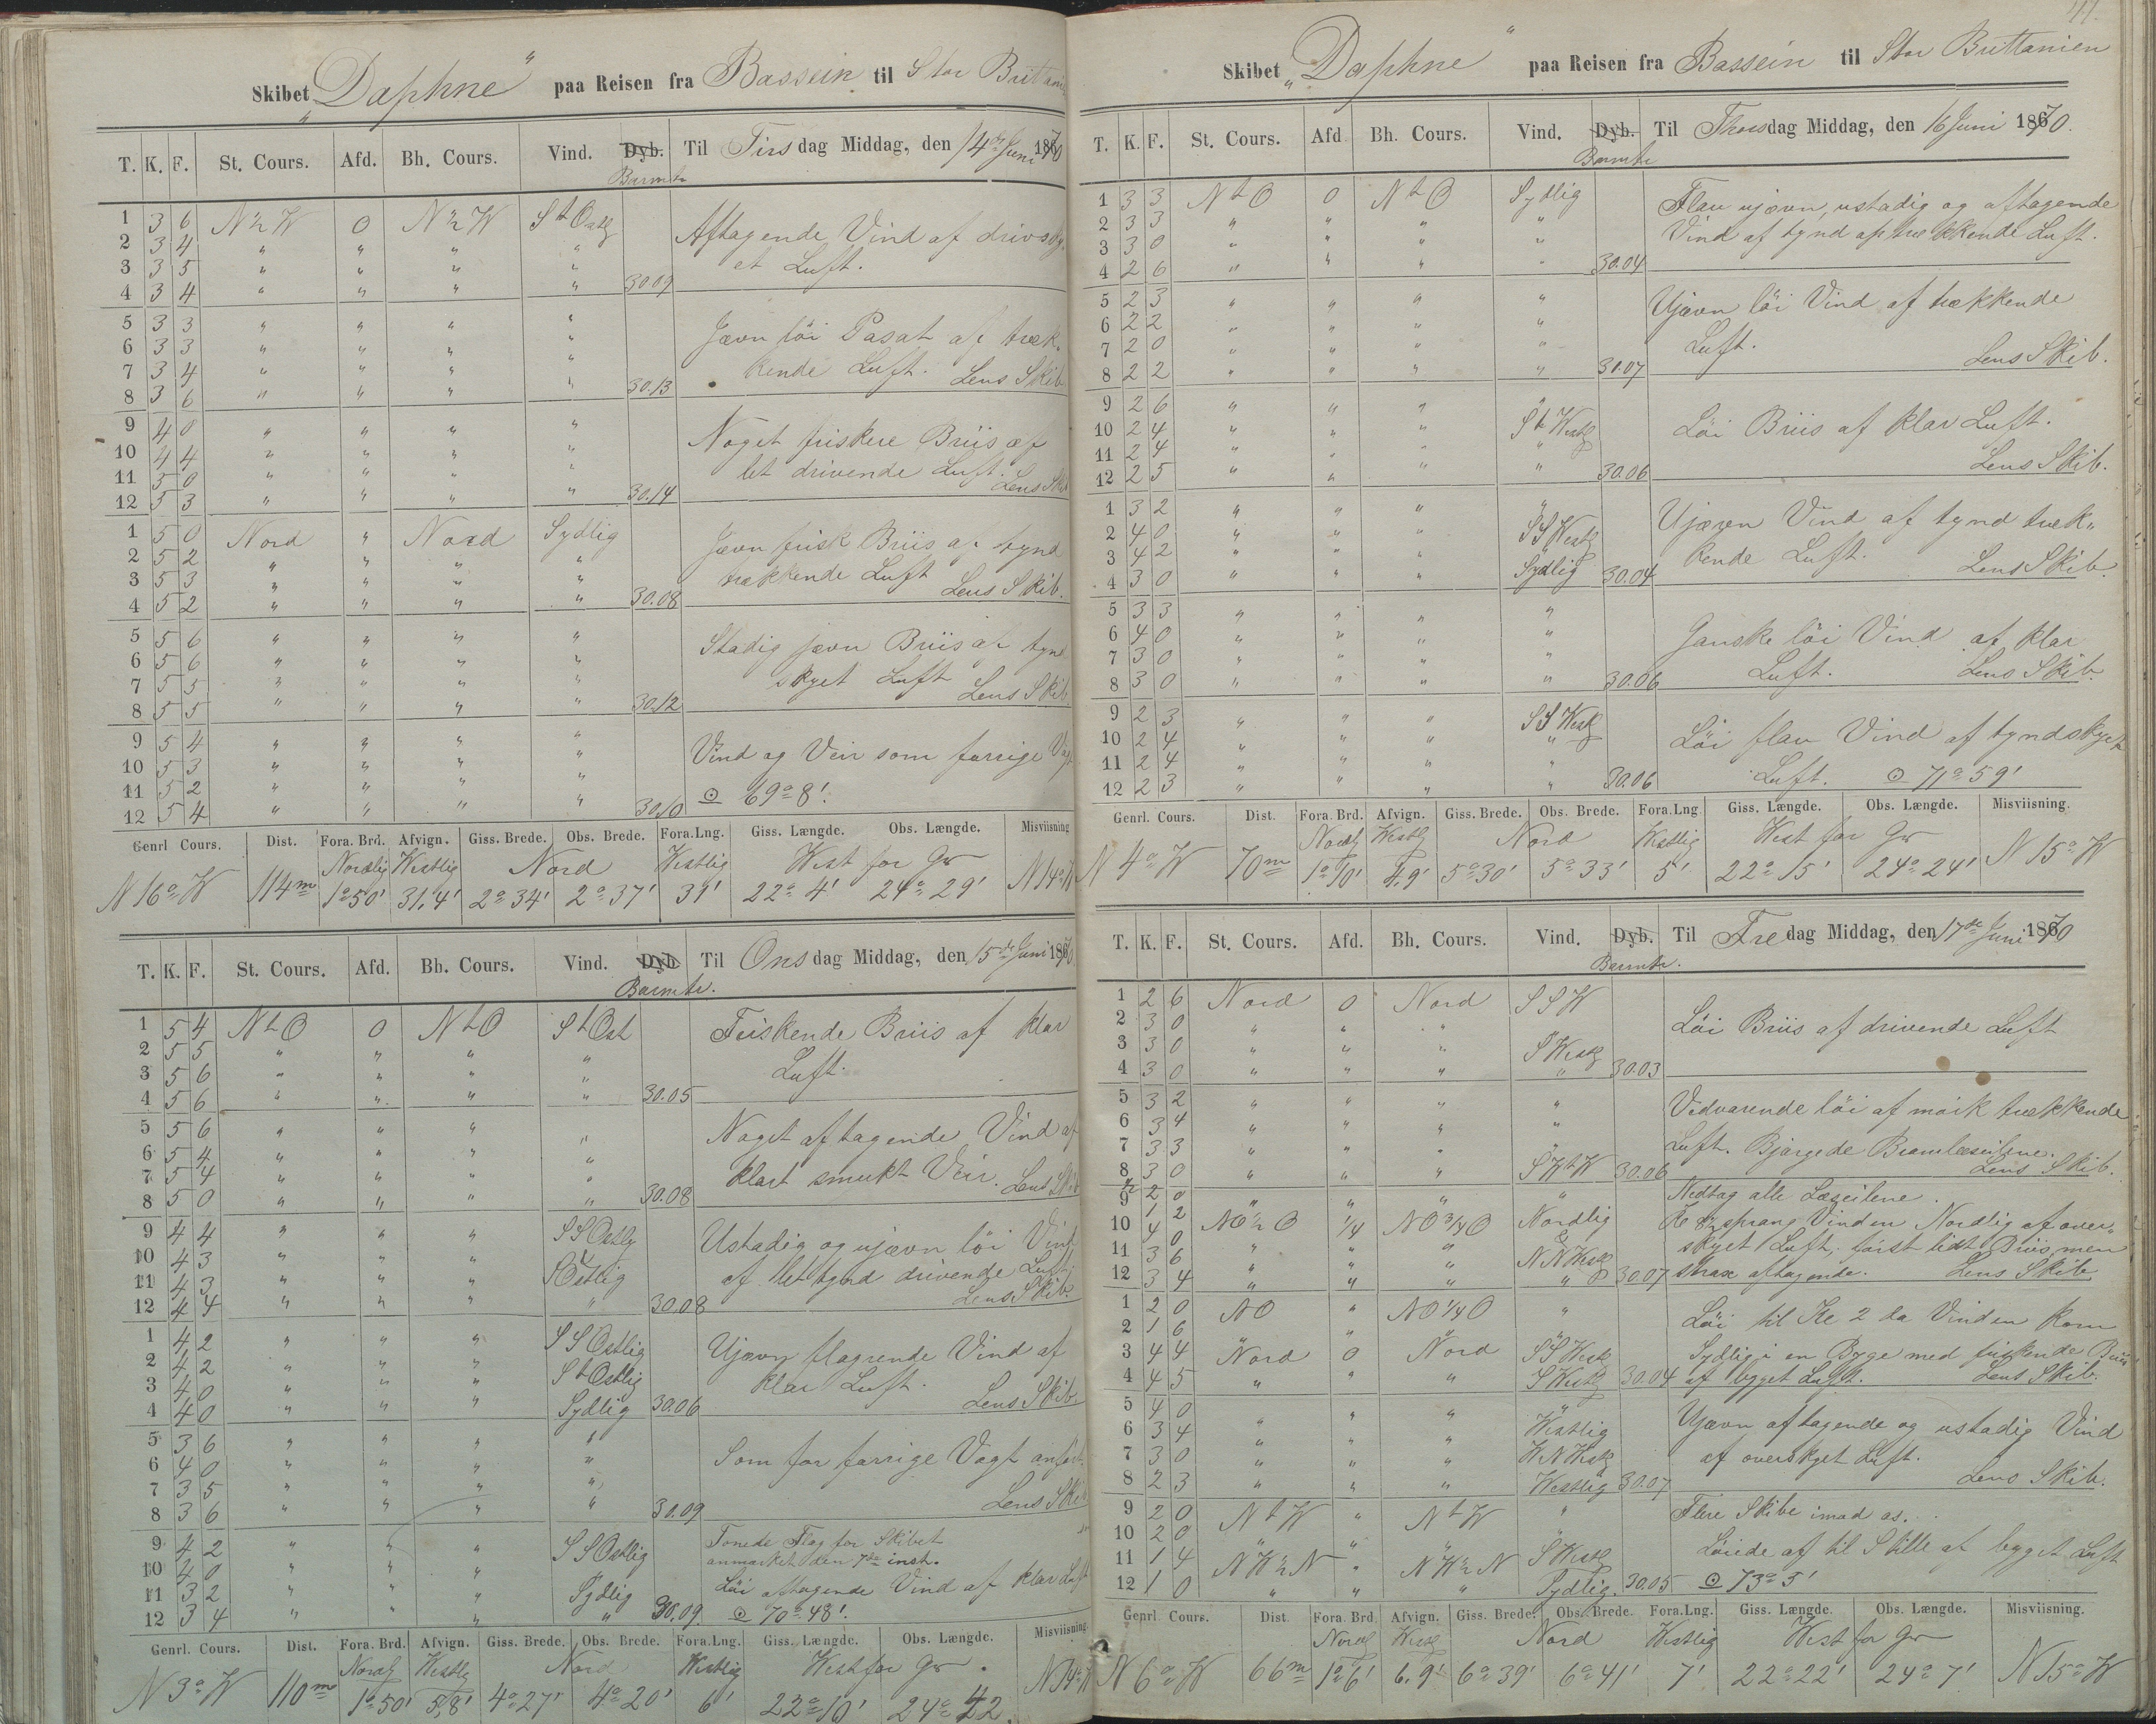 Skibet „Daphne“ paa Reisen fra Bassein til Stor Brittanien
T. K. F. St. Cours. Afd. Bh. Cours. Vind. Dyb. Til Tirsdag Middag, den 14de Juni 1870
Barmtr
1 3 6 N½W 0 N½W StOstlg Aftagende Vind af drivsky-
2 3 4 " " " " et Luft.
3 3 5 " " " "
4 3 4 " " " " 30.09
5 3 3 " " " " Jævn löi Pasat af træk-
6 3 3 " " " " kende Luft. Lens Skib
7 3 4 " " " " 30.13
8 3 6 " " " "
9 4 0 " " " " Noget friskere Briis af
10 4 4 " " " " let drivende Luft. Lens Skib
11 5 0 " " " "
12 5 3 " " " " 30.14
1 5 0 Nord " Nord Sydlig Jævn frisk Briis af tynd
2 5 2 " " " " trækkende Luft
3 5 3 " " " " Lens Skib.
4 5 2 " " " " 30.08
5 5 6 " " " " Stadig jævn Briis af tynd
6 5 6 " " " " skyet Luft
7 5 5 " " " " Lens Skib
8 5 5 " " " " 30.12
9 5 4 " " " " Vind og Veir som forrige Vagt
10 5 3 " " " "
11 5 2 " " " " ⊙ 69° 8'.
12 5 4 " " " " 30.10
Genrl Cours. Dist. Fora. Brd. Afvign. Giss. Brede. Obs. Brede. Fora. Lng. Giss. Længde. Obs. Længde. Misviisning
Nordlig Westlig Nord Westlig West for Gr
N 16° W 114m 1°50' 31,4' 2°34' 2°37' 31' 22° 4' 24° 29' N 14° W
T. K. F. St. Cours. Afd. Bh. Cours. Vind. Dyb Til Onsdag Middag, den 15de Juni 1870
Barmtr.
1 5 4 NtO 0 NtO StOst Friskende Briis af klar
2 5 5 " " " " Luft.
3 5 6 " " " "
4 5 6 " " " " 30.05
5 5 6 " " " " Noget aftagende Vind af
6 5 4 " " " "
7 5 4 " " " " klart smukt Veir. Lens Skib
8 5 0 " " " " 30.08
9 4 4 " " " SSOstlg Ustadig og ujævn löi Vind
10 4 3 " " " " af let tynd drivende Luft
11 4 3 " " " SOstlig Lens Skib
12 4 4 " " " " 30.08
1 4 2 " " " SSOstlig Ujævn flagrende Vind af
2 4 2 " " " StOstlig klar Luft.
3 4 0 " " " Lens Skib
4 4 0 " " " Sydlig 30.06
5 3 6 " " " " Som for forrige Vagt anfört.
6 4 0 " " " "
7 3 5 " " " " Lens Skib
8 3 6 " " " " 30.09
9 4 2 " " " SSOstlig Tonede Flag for Skibet
anmærket den 7de inst.
10 4 0 " " " Löi aftagende Vind af klar Luft
11 3 2 " " " Sydlig
12 3 4 " " " " 30.09 ⊙ 70° 48'.
Genrl. Cours. Dist. Fora. Brd. Afvign. Giss. Brede. Obs. Brede. Fora. Lng. Giss. Længde. Obs. Længde. Misviisning.
Nordlg Westlg Nord Westlig West for Gr
N 3° W 110m 1°50' 5,8' 4° 27' 4° 20' 6' 22° 10' 24° 42 N 14° W
41.
Skibet „Daphne“ paa Reisen fra Bassein til Stor Brittanien
T. K. F. St. Cours. Afd Bh. Cours. Vind. Dyb. Til Thorsdag Middag, den 16 Juni 1870.
Barmtr
1 3 3 NtO 0 NtO Sydlig Flau ujævn, ustadig og aftagende
2 3 3 " " " " Vind af tynd optrækkende Luft.
3 3 0 " " " "
4 2 6 " " " " 30.04
5 2 3 " " " " Ujævn löi Vind af trækkende
6 2 2 " " " " Luft.
7 2 0 " " " " Lens Skib.
8 2 2 " " " " 30.07
9 2 6 " " " " Löi Briis af klar Luft.
10 2 4 " " " StWestlg
11 2 4 " " " " Lens Skib.
12 2 5 " " " " 30.06
1 3 2 " " " " Ujævn Vind af tynd træk-
2 4 0 " " " SSWestlg kende Luft.
3 4 2 " " " " Lens Skib.
4 3 0 " " " Sydlig 30.04
5 3 3 " " " " Ganske löi Vind af klar
6 4 0 " " " " Luft. Lens Skib.
7 3 0 " " " "
8 3 0 " " " " 30.06
9 2 3 " " " SSWestlg Löi flau Vind af tyndskyet
10 2 4 " " " " Luft. ⊙ 71° 59'
11 2 4 " " " "
12 2 3 " " " " 30.06
Genrl. Cours. Dist. Fora. Brd. Afvign. Giss. Brede. Obs. Brede. Fora. Lng Giss. Længde. Obs. Længde. Misviisning.
Nordlg Westlg Nord Westlig West for Gr
N 4° W 70m 1°10' 4,9' 5°30' 5° 33' 5' 22° 15' 24° 24' N 15° W
T. K. F. St. Cours. Afd. Bh. Cours. Vind. Dyb. Til Fredag Middag, den 17de Juni 1870
Barmtr.
1 2 6 Nord 0 Nord SSW Löi Briis af drivende Luft
2 3 0 " " "
3 3 0 " " " SWestlg
4 3 0 " " " " 30.03
5 3 2 " " " " Vedvarende löi af mörk trækkende
6 3 4 " " " " Luft. Bjærgede Bramlæseilene.
7 3 3 " " " Lens Skib.
8 3 0 " " " SWtW 30.06
½ 2 0 " " " " Nedtog alle Læseilene.
9 1 2
10 4 0 NO½O ¼ NO¾O Nordlig Kl 8½ sprang Vinden Nordlig af over-
11 3 6 " " " NNWestlg skyet Luft, först lidt Briis men
12 3 4 " " " " 30.07 strax aftagende. Lens Skib
1 2 0 NO " NO¼O " Löi til Kl 2 da Vinden kom
2 1 6 " " " "
3 4 4 Nord 0 Nord SSWestlg Sydlig i en Byge med friskende Briis
4 4 5 " " " SWestlg 30.04 af byget Luft. Lens Skib.
5 4 0 " " " Ujævn aftagende og ustadig Vind
6 3 4 " " " Westlig af overskyet Luft.
7 3 0 " " " WNWestlg
8 2 3 " " " Westlig 30.07 Lens Skib.
9 2 0 NtW " NtW " Flere Skibe imod os.
10 2 0 " " " Löiede af til Stille af byget Luft
11 1 4 NW½N " NW½N SWestlg
12 1 0 " " " Sydlig 30.05 ⊙ 73° 5'
Genrl. Cours. Dist. Fora. Brd Afvign. Giss. Brede. Obs. Brede. Fora. Lng. Giss. Længde. Obs. Længde. Misviisning.
Nordlg Westlg Nord Westlig West for Gr
N 6° W 66m 1° 6' 6.9' 6° 39' 6° 41' 7' 22° 22' 24° 7' N 15° W